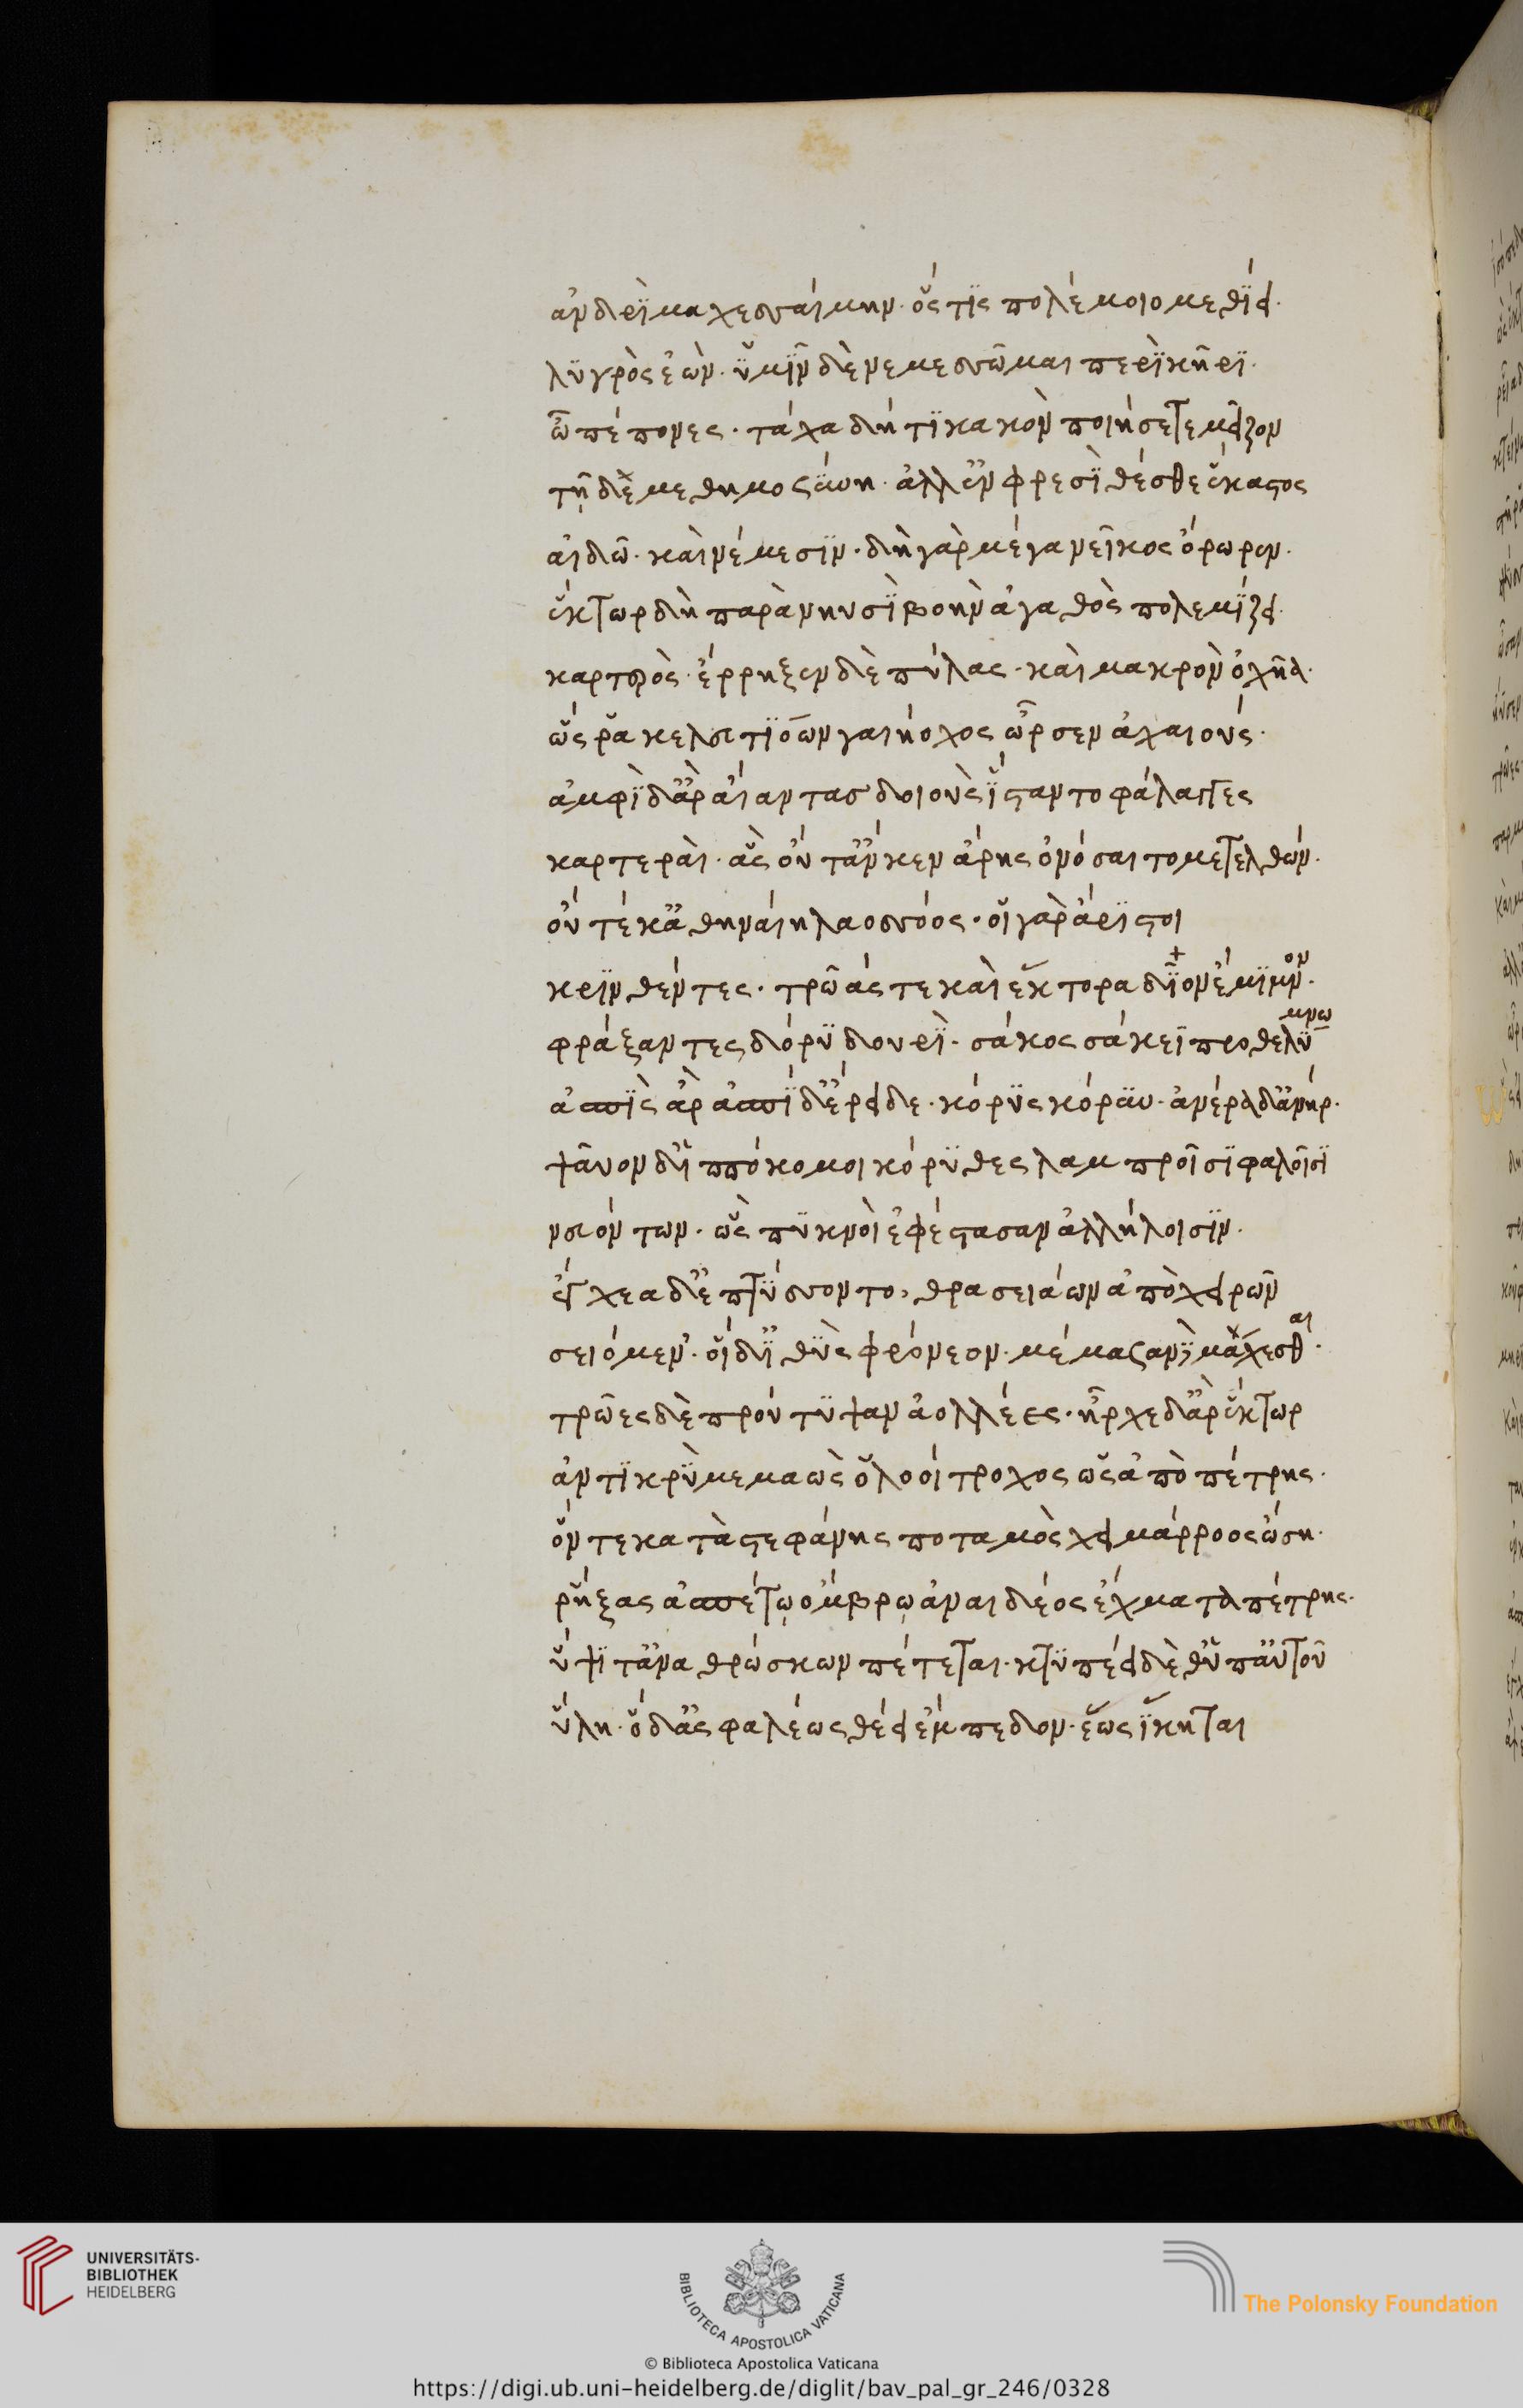 ἀνδρὶ μαχεσσαίμην. ὅς τις πολέμοιο μεθίει.
λυγρὸς ἐών. ὑμῖν δὲ νεμεσσῶμαι περὶ κῆρι.
ὦ πέπονες. τάχα δή τι κακὸν ποιήσετε μεῖζον
τῇδε μεθημοσύνη. ἀλλ' ἐν φρεσὶ θέσθε ἕκαστος
αἰδῶ. καὶ νέμεσιν. δὴ γὰρ μέγα νεῖκος ὄρωρεν.
ἕκτωρ δὴ παρὰ νηυσὶ βοὴν ἀγαθὸς πολεμίζει.
καρτερὸς. ἔρρηξεν δὲ πύλας. καὶ μακρὸν ὀχῆα.
ὥς ῥα κελευτιόων γαιήοχος ὦρσεν ἀχαιούς.
ἀμφὶ δ' ἄρ' αἴαντας δοιοὺς ἵσταντο φάλαγγες
καρτεραὶ. ἃς οὔτ' ἄν κεν ἄρης ὀνόσαιτο μετελθών.
οὔτέ κ' ἀθηναίη λαοσσόος. οἳ γὰρ ἄριστοι
κρινθέντες. τρῶάς τε καὶ ἕκτορα δῖον ἔμιμνον.
φράξαντες δόρυ δουρὶ. σάκος σάκεϊ προθελύμνω
ἀσπὶς ἄρ' ἀσπίδ' ἔρειδε. κόρυς κόρυν. ἀνέρα δ' ἀνήρ.
ψαῦον δ' ἱππόκομοι κόρυθες λαμπροῖσι φαλοῖσι
νευόντων. ὣς πυκνοὶ ἐφέστασαν ἀλλήλοισιν.
ἔγχεα δ' ἐπτύσσοντο, θρασειάων ἀπὸ χειρῶν
σειόμεν'. οἳ δ' ἰθὺς φρόνεον. μέμασαν δὲ μάχεσθαι.
τρῶες δὲ προύτυψαν ἀολλέες. ἦρχε δ' ἄρ' ἕκτωρ
ἀντικρὺ μεμαὼς ὀλοοίτροχος ὣς ἀπὸ πέτρης.
ὅν τε κατὰ στεφάνης ποταμὸς χειμάρροος ὤση.
ῥήξας ἀσπέτῳ ὄμβρῳ ἀναιδέος ἔχματα πέτρης.
ὕψι τ' ἀναθρώσκων πέτεται. κτυπέει δέ θ' ὑπ' αὐτοῦ
ὕλη. ὃ δ' ἀσφαλέως θέει ἔμπεδον. ἕως ἵκηται
UNIVERSITÄTS-
BIBLIOTHEK
HEIDELBERG
BIBLIOTECA APOSTOLICA VATICANA
The Polonsky Foundation
© Biblioteca Apostolica Vaticana
https://digi.ub.uni-heidelberg.de/diglit/bav_pal_gr_246/0328